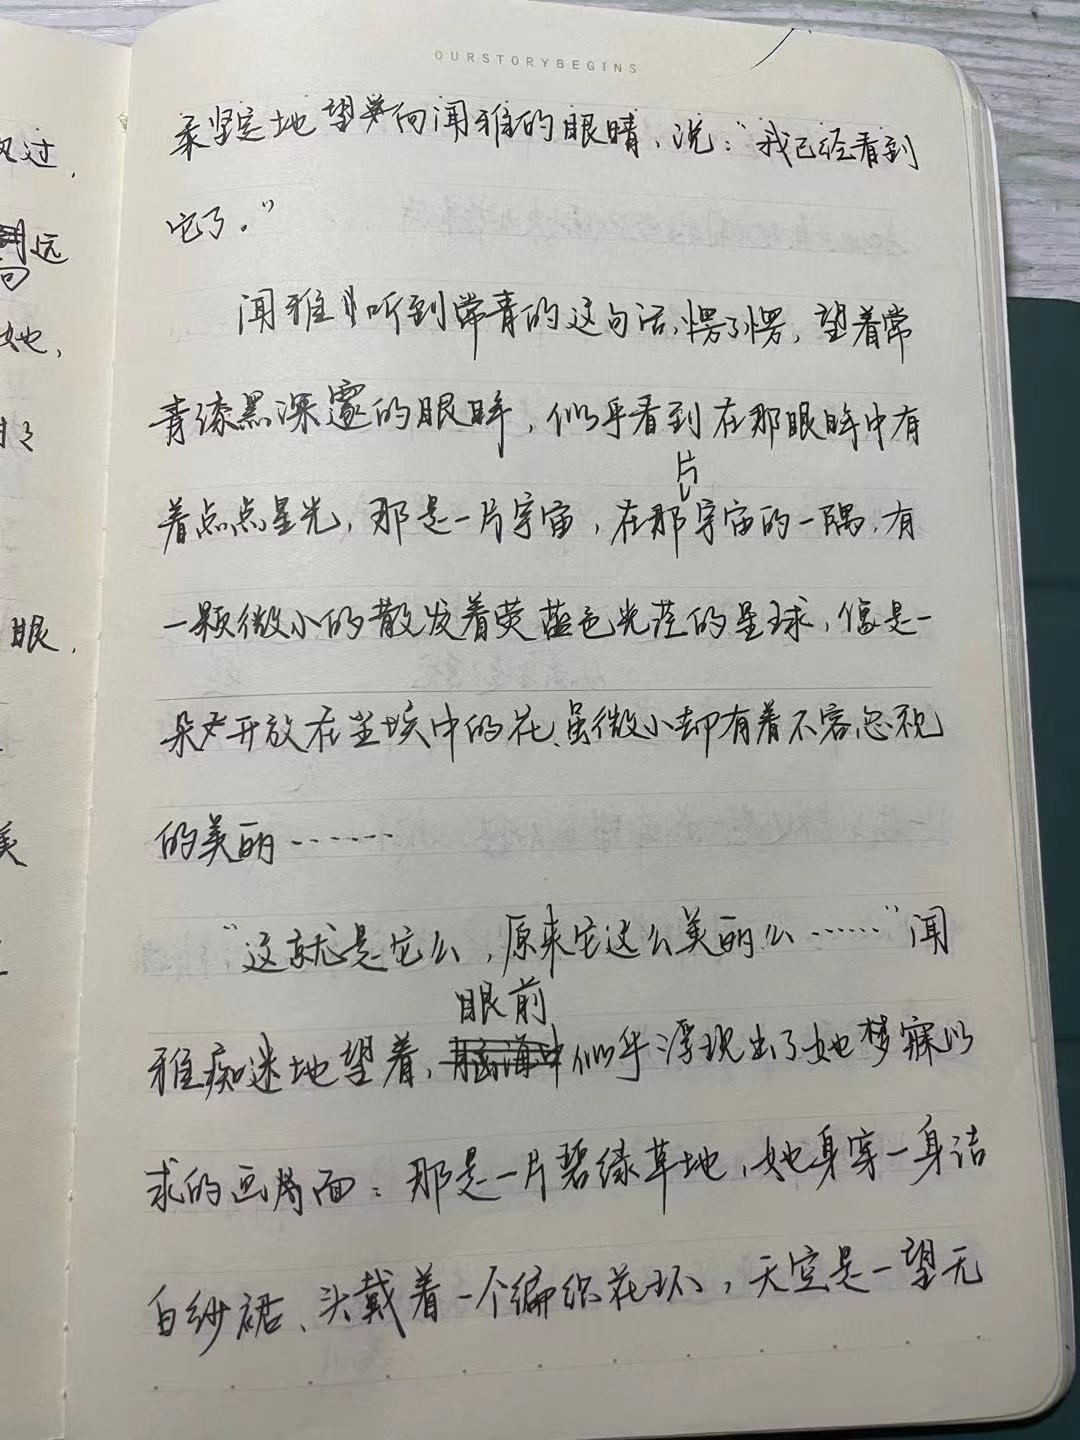 OURSTORYBEGINS
柔坚定地望向闻雅的眼睛，说：“我已经看到
它了。”
闻雅听到常青的这句话，愣了愣，望着常
青漆黑深邃的眼眸，似乎看到在那眼眸中有
着点点星光，那是一片宇宙，在那片宇宙的一隅，有
一颗微小的散发着荧蓝色光茫的星球，像是一
朵开放在尘埃中的花，虽微小却有着不容忽视
的美丽……
“这就是它么，原来它这么美丽么……”闻
雅痴迷地望着，眼前似乎浮现出了她梦寐以
求的画面：那是一片碧绿草地，她身穿一身洁
白纱裙、头戴着一个编织花环，天空是一望无
过，
远
向
她，
眼，
美